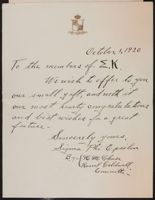 October 1, 1920
To the members of Σ.K.
We wish to offer to you
our small gift, and with it
our most hearty congratulations
and best wishes for a great
future.
Sincerely yours,
Sigma Phi Epsilon
By:
Committee